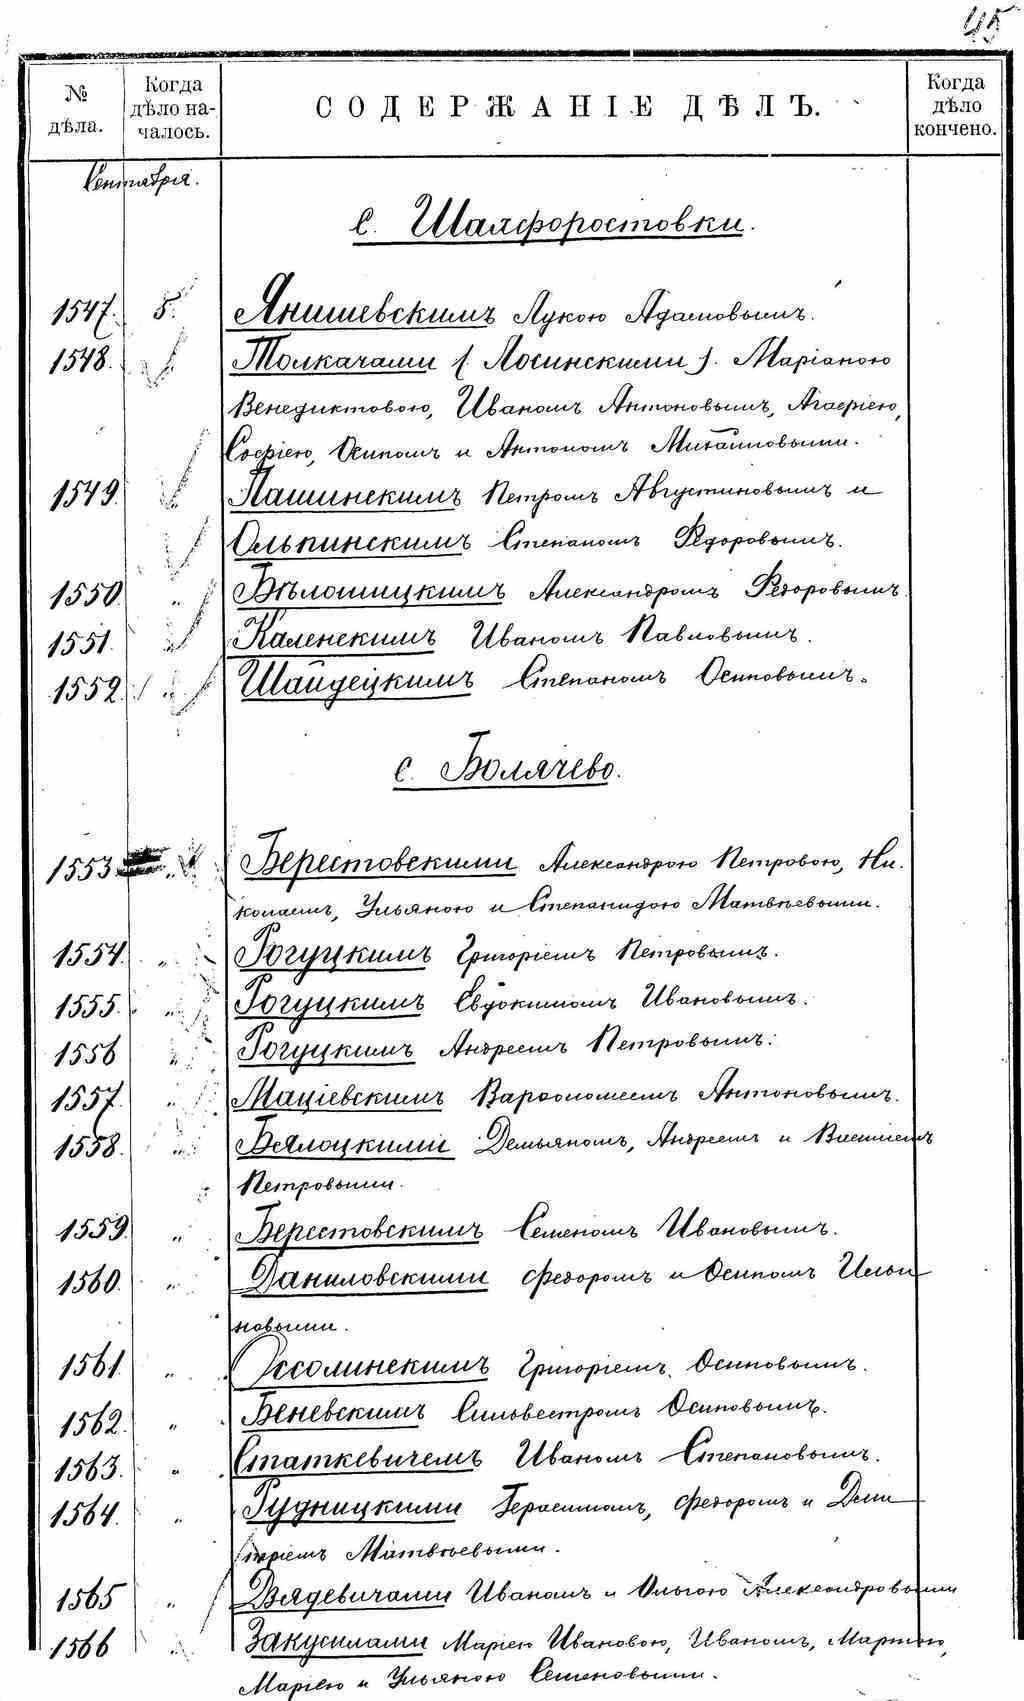 45
№ дѣла.
Когда дѣло на-чалось.
СОДЕРЖАНІЕ ДѢЛЪ.
Когда дѣло кончено.
Сентября.
С. Шамфоростовки.
1547. 5. Янишевскимъ Лукою Адамовымъ.
1548. Толкачами (Лосинскими). Маріаною
Венедиктовою, Иваномъ Антоновымъ, Агафіею,
Софіею, Осипомъ и Антономъ Михайловыми.
1549. Пашинскимъ Петромъ Августиновымъ и
Ольпинскимъ Степаномъ Ѳедоровымъ.
1550. " Бѣлошицкимъ Александромъ Ѳедоровымъ.
1551. " Каленскимъ Иваномъ Павловымъ.
1552. " Шайдецкимъ Степаномъ Осиповымъ.
с. Болячево.
1553 " Берестовскими Александрою Петровою, Ни-
колаемъ, Ульяною и Степанидою Матвѣевыми.
1554. " Рогуцкимъ Григоріемъ Петровымъ.
1555. " Рогуцкимъ Евдокимомъ Ивановымъ.
1556 " Рогуцкимъ Андреемъ Петровымъ.
1557. " Маціевскимъ Варфоломеемъ Антоновымъ.
1558. " Бялоцкими Демьяномъ, Андреемъ и
Петровыми.
1559. " Берестовскимъ Семеномъ Ивановымъ.
1560. " Даниловскими Федоромъ и Осипомъ
новыми.
1561. " Оссолинскимъ Григоріемъ Осиповымъ.
1562. " Беневскимъ Сильвестромъ Осиповымъ.
1563. " Статкевичемъ Иваномъ Степановымъ.
1564. " Рудницкими Герасимомъ, Федоромъ и Дми
тріемъ Матвѣевыми.
1565 " Дядевичами Иваномъ и Ольгою Александровыми
1566 " Закусилами Маріею Ивановою, Иваномъ, Марѳою,
Маріею и Ульяною Семеновыми.